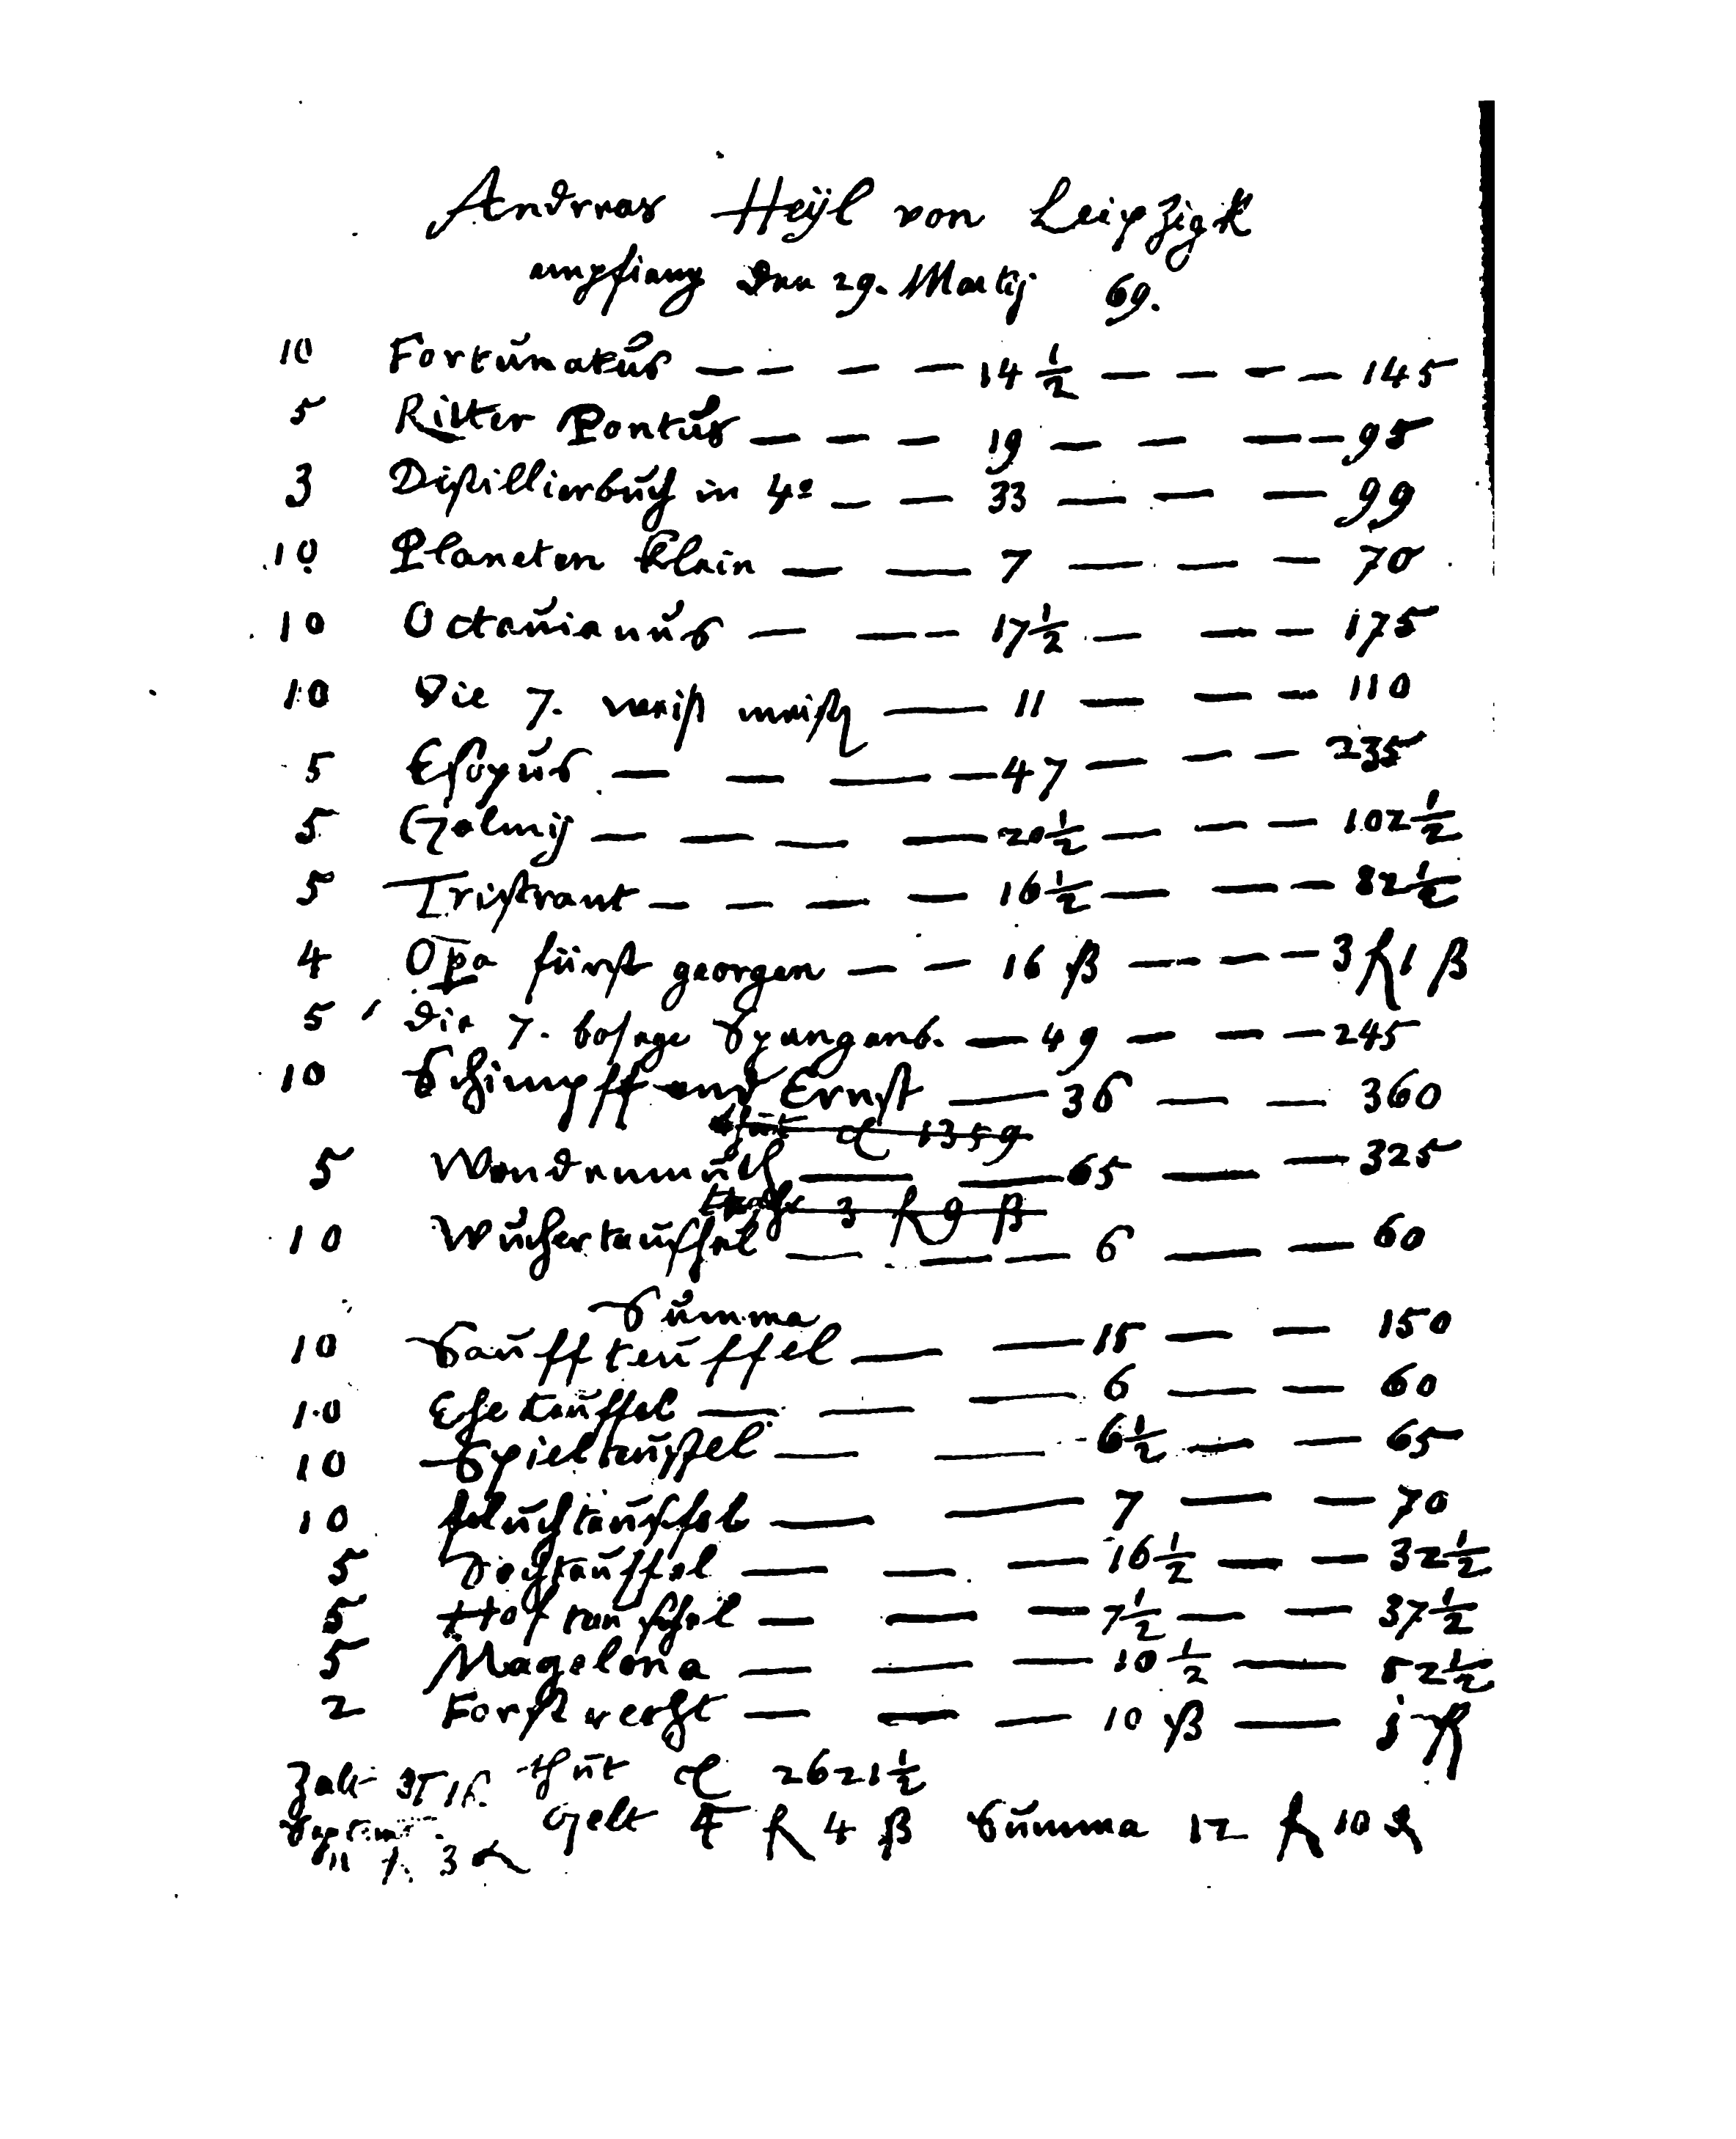 Andreas Heÿl von Leipzigk
empfieng den 29. Martij 69.
10 Fortunatus — — — — 14 ½ — — — — 145
5 Ritter Pontus — — — 19 — — — — 95
3 Distillierbuch in 4º — — 33 — — — 99
10 Planeten klein — — 7 — — — 70
10 Octauianus — — — 17 ½ — — — 175
10 Die 7. weiß meister — 11 — — — 110
5 Esopus — — — — 47 — — — 235
5 Galmij — — — — 20 ½ — — — 102 ½
5 Tristrant — — — — 16 ½ — — — 82 ½
4 Opa fürst georgen — — 16 ß — — — — 3 fl 1 ß
5 die 7. bosege Spangenb. — 49 — — — 245
10 Schimpff und Ernst — 36 — — 360
thut 1359
5 Wendunmuth — — 65 — — 325
3 fl 9 ß
10 Wucherteuffel — — — 6 — — 60
Summa
10 Sauffteuffel — — 15 — — 150
10 Eheteuffel — — — 6 — — 60
10 Spielteuffel — — 6 ½ — — 65
10 fluchteuffel — — 7 — — 70
5 — — — 16 ½ — — 32 ½
5 Hofteuffel — — — 7 ½ — — 37 ½
5 Magelona — — — 10 ½ — 52 ½
2 Forstrecht — — — 10 ß — j fl
Zalt thut 2621 ½
Gelt 4 fl 4 ß Summa 12 fl 10 ß